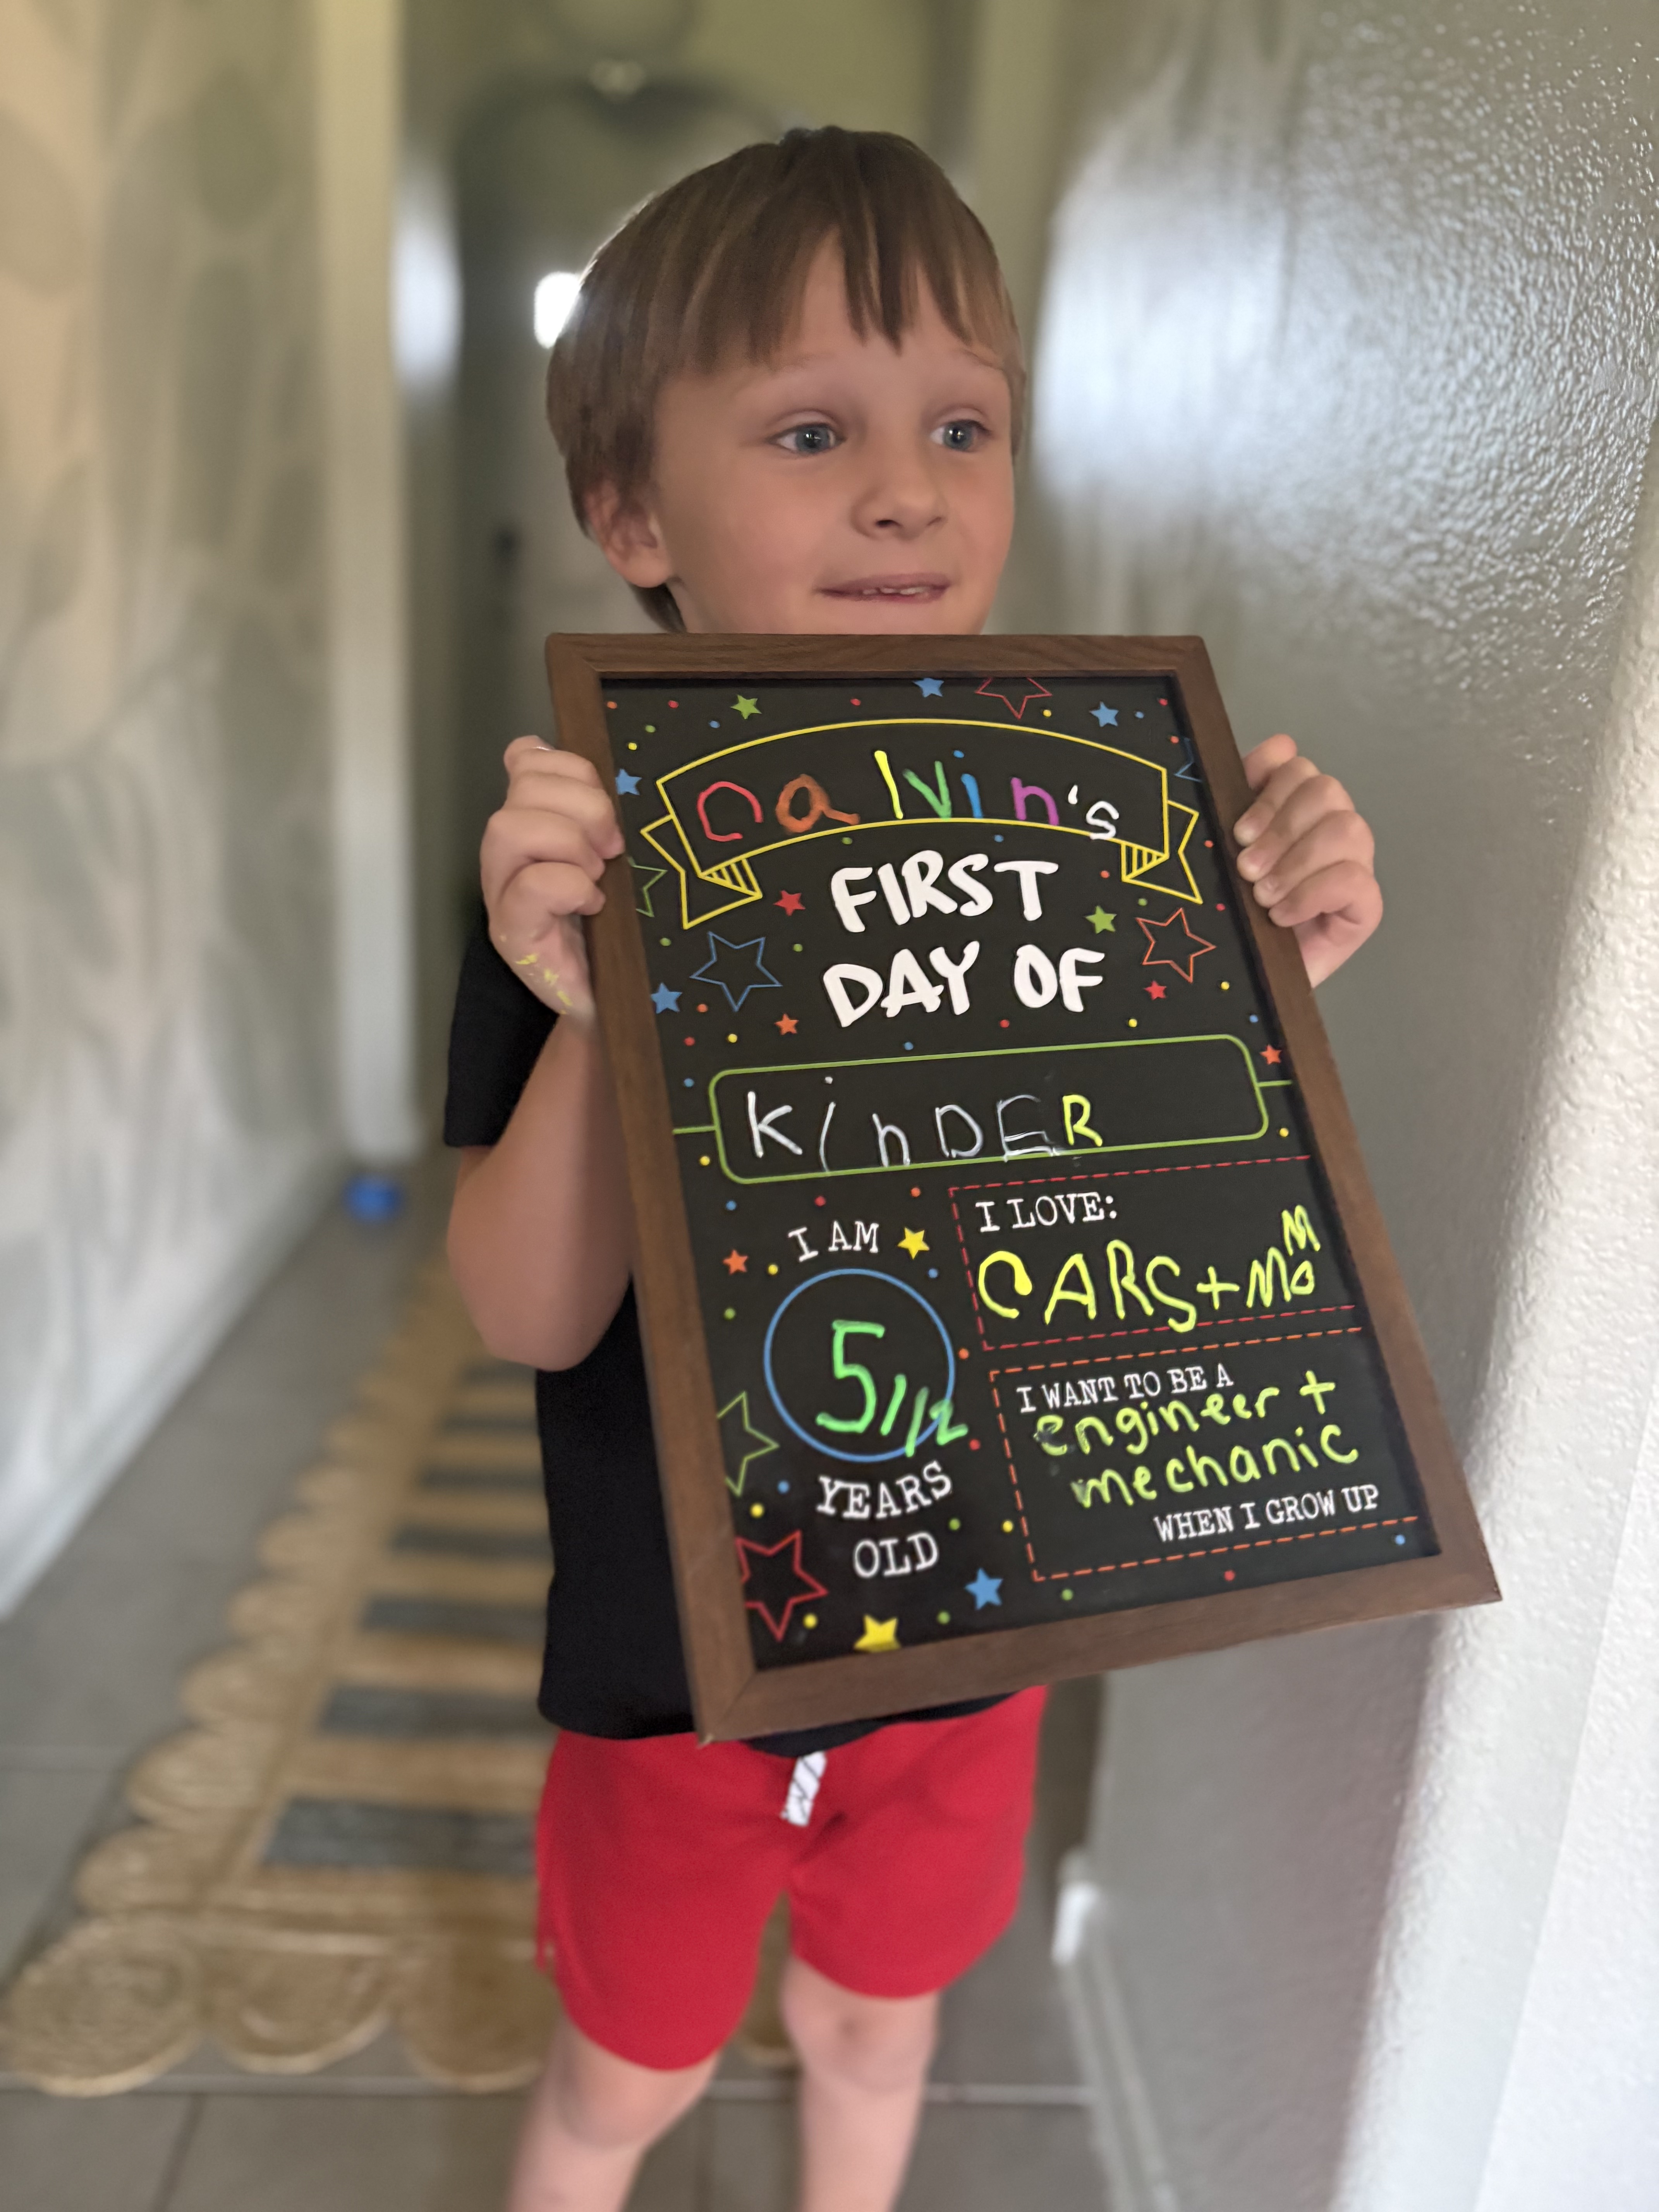 Calvin's
FIRST
DAY OF
KinDER
I AM
5 1/2
YEARS
OLD
I LOVE:
CARS + MOM
I WANT TO BE A
engineer +
mechanic
WHEN I GROW UP